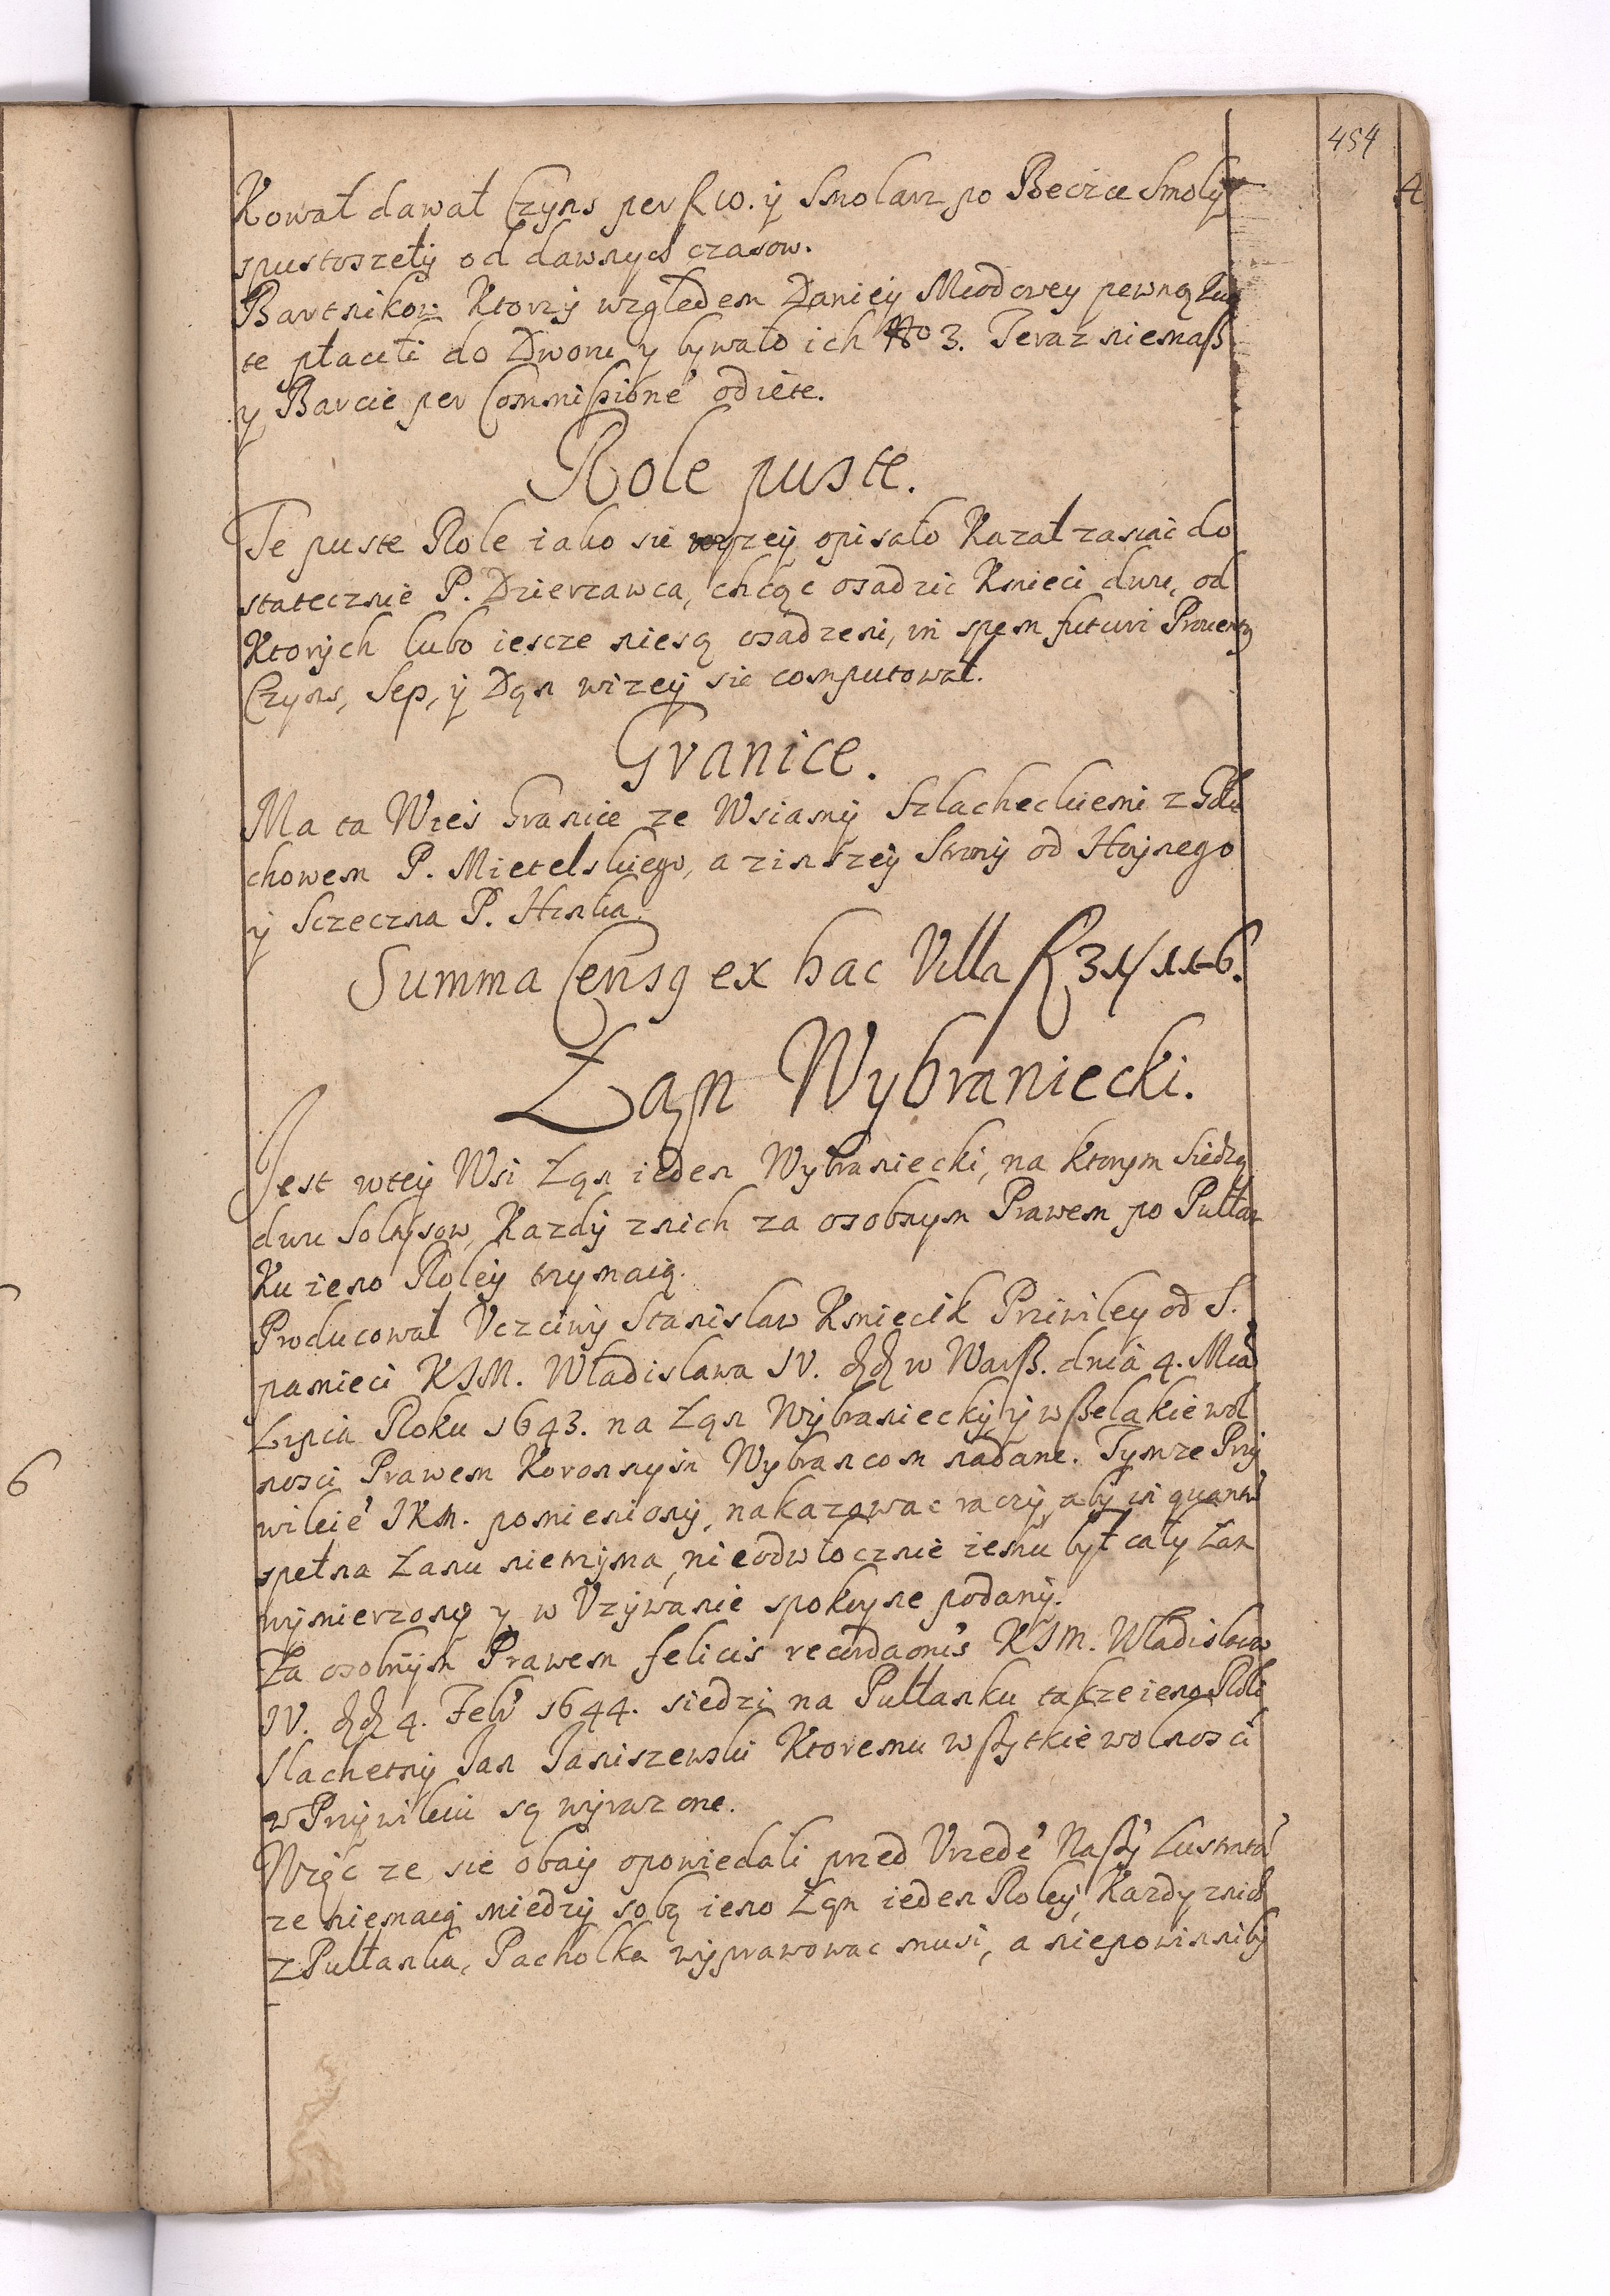 454
Kowal dawał Czyns per fl 10. ÿ Smolarz po Beczce Smolÿ
spustoszełÿ od dawnych czasow.
Bartnikow Ktorzÿ względem Daniey Miodowey pewną
te płacili do Dworu y bywało ich No 3. Teraz niemaß
y Barcie per Commißione odięte.
Role puste.
Te puste Role iako sie wyzey opisało Kazał zasiac do
statecznie P. Dzierzawca, chcąc osadzic Kmieci dwu, od
Ktorÿch lubo iescze niesą osadzeni, in spem futuri Prouentꝫ
Czyns, Sep, ÿ Dąn wizeÿ sie computował.
Granice.
Ma ta Wieś Granice ze Wsiamÿ Szlacheckiemi z Głu
chowem P. Mietelskiego, a zinszeÿ Stronÿ od Hoÿnego
ÿ Sczeczna P. Hinka.
Summa Censꝯ ex hac Villa fl 31/11-6.
Łąn Wybraniecki.
Jest wteÿ Wsi Łąn ieden Wybraniecki, na ktorym siedzą
dwu Soltysow, Kazdÿ znich za osobnym Prawem po Pułłan
Ku ieno Roleÿ trzymaią.
Producował Vczciwÿ Stanislaw Kmiecik Priwiley od S.
pamieci KJM. Władislawa IV. dd w Warß. dnia 4. Mca
Lipca Roku 1643. na Łąn Wÿbranieckÿ ÿ wßelakie wol
nosci Prawem Koronnym Wybrancom nadane. Tymze Prÿ
wileie JKM. pomienionÿ, nakazowac raczÿ, abÿ in quantu
spełna Łanu nietrzÿma, nieodwłocznie iemu był całÿ Łan
wymierzonÿ y w Vzÿwanie spokoyne podanÿ.
Za osobnÿm Prawem felicis recordaonis KJM. Władislawa
IV. dd 4. Feb 1644. siedzi na Pułłanku takze ieno Roli
Slachetnÿ Jan Janiszewski Ktoremu wßytkie wolnosci
w Prÿwileiu są wÿrazone.
Wzięc ze sie obaÿ opowiedali przed Vrzede Naßÿ Lustrtor
ze niemaią miedzÿ sobą ieno Łąn ieden Roleÿ, Kazdy znich
z Pułłanka, Pacholka wÿprawowac musi, a niepowinnibÿ
6